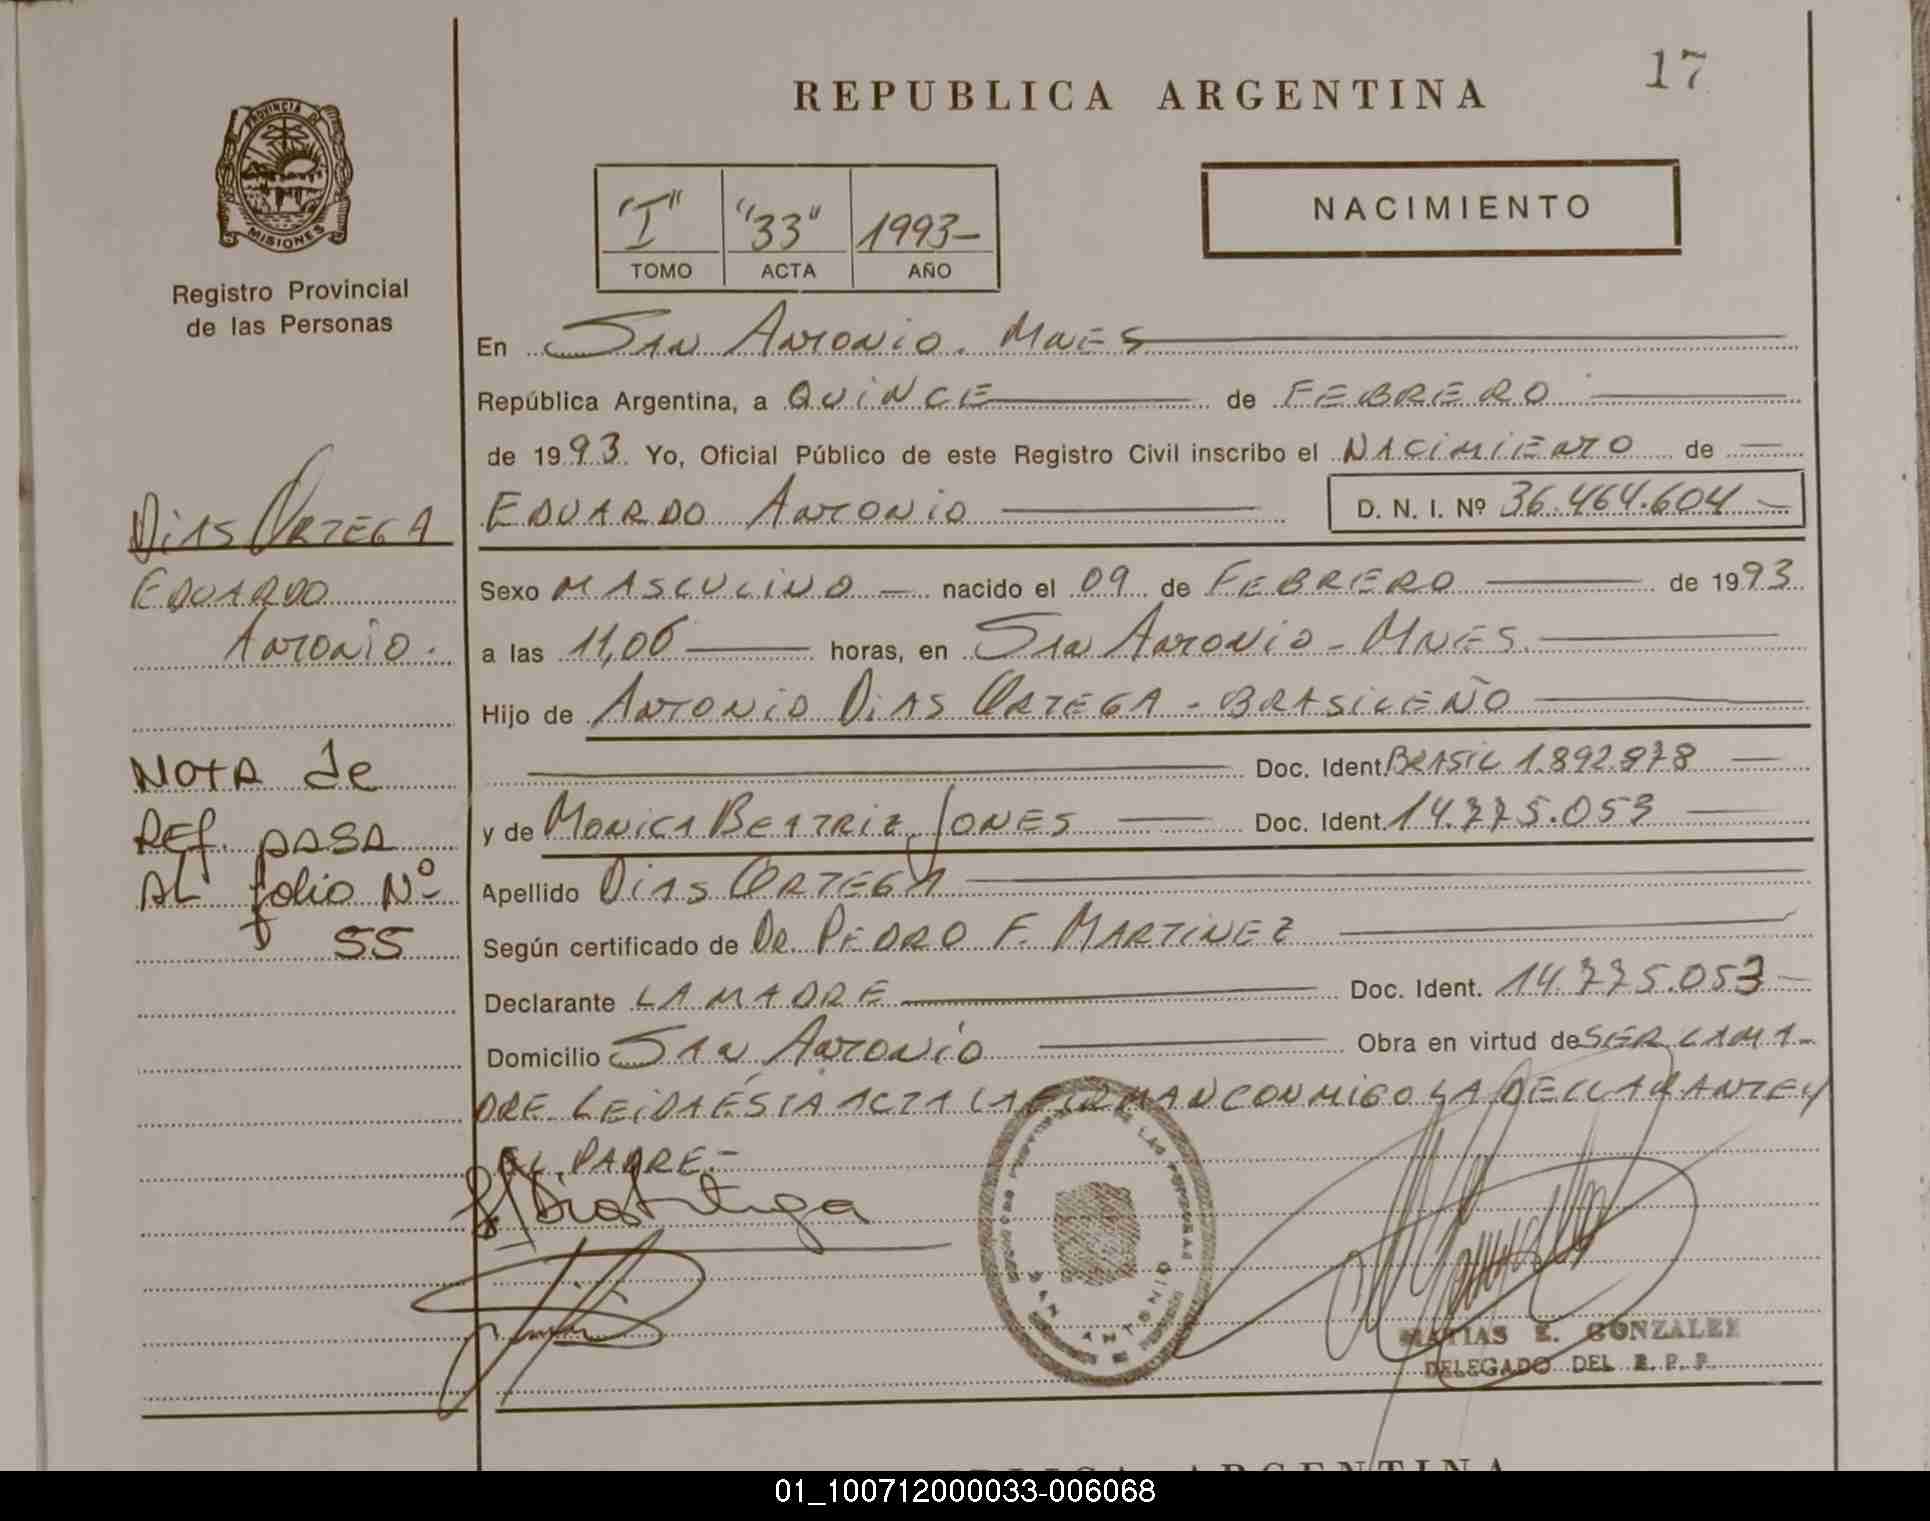 17
REPUBLICA ARGENTINA
PROVINCIA DE
MISIONES
Registro Provincial
de las Personas
"I" "33" 1993-
TOMO ACTA AÑO
NACIMIENTO
En San Antonio. Mnes
República Argentina, a QUINCE de FEBRERO
de 1993 Yo, Oficial Público de este Registro Civil inscribo el NACIMIENTO de
EDUARDO ANTONIO D. N. I. Nº 36.464.604
Dias Ortega
Eduardo
Antonio.
Sexo MASCULINO nacido el 09 de FEBRERO de 1993
a las 11,00 horas, en San Antonio - Mnes.
Hijo de Antonio Dias Ortega - BRASILEÑO
Doc. Ident. BRASIL 1.892.978
y de Monica Beatriz Jones Doc. Ident. 14.775.053
Apellido Dias Ortega
Según certificado de Dr. Pedro F. Martinez
Declarante LA MADRE Doc. Ident. 14.775.053
Domicilio San Antonio Obra en virtud de SER LA MA-
DRE. LEIDA ÉSTA ACTA LA FIRMAN CONMIGO LA DECLARANTE Y
EL PADRE.-
NOTA de
REf. PASA
AL folio Nº
55
SAN ANTONIO
MATIAS E. GONZALEZ
DELEGADO DEL R. P. P.
ARGENTINA
01_100712000033-006068